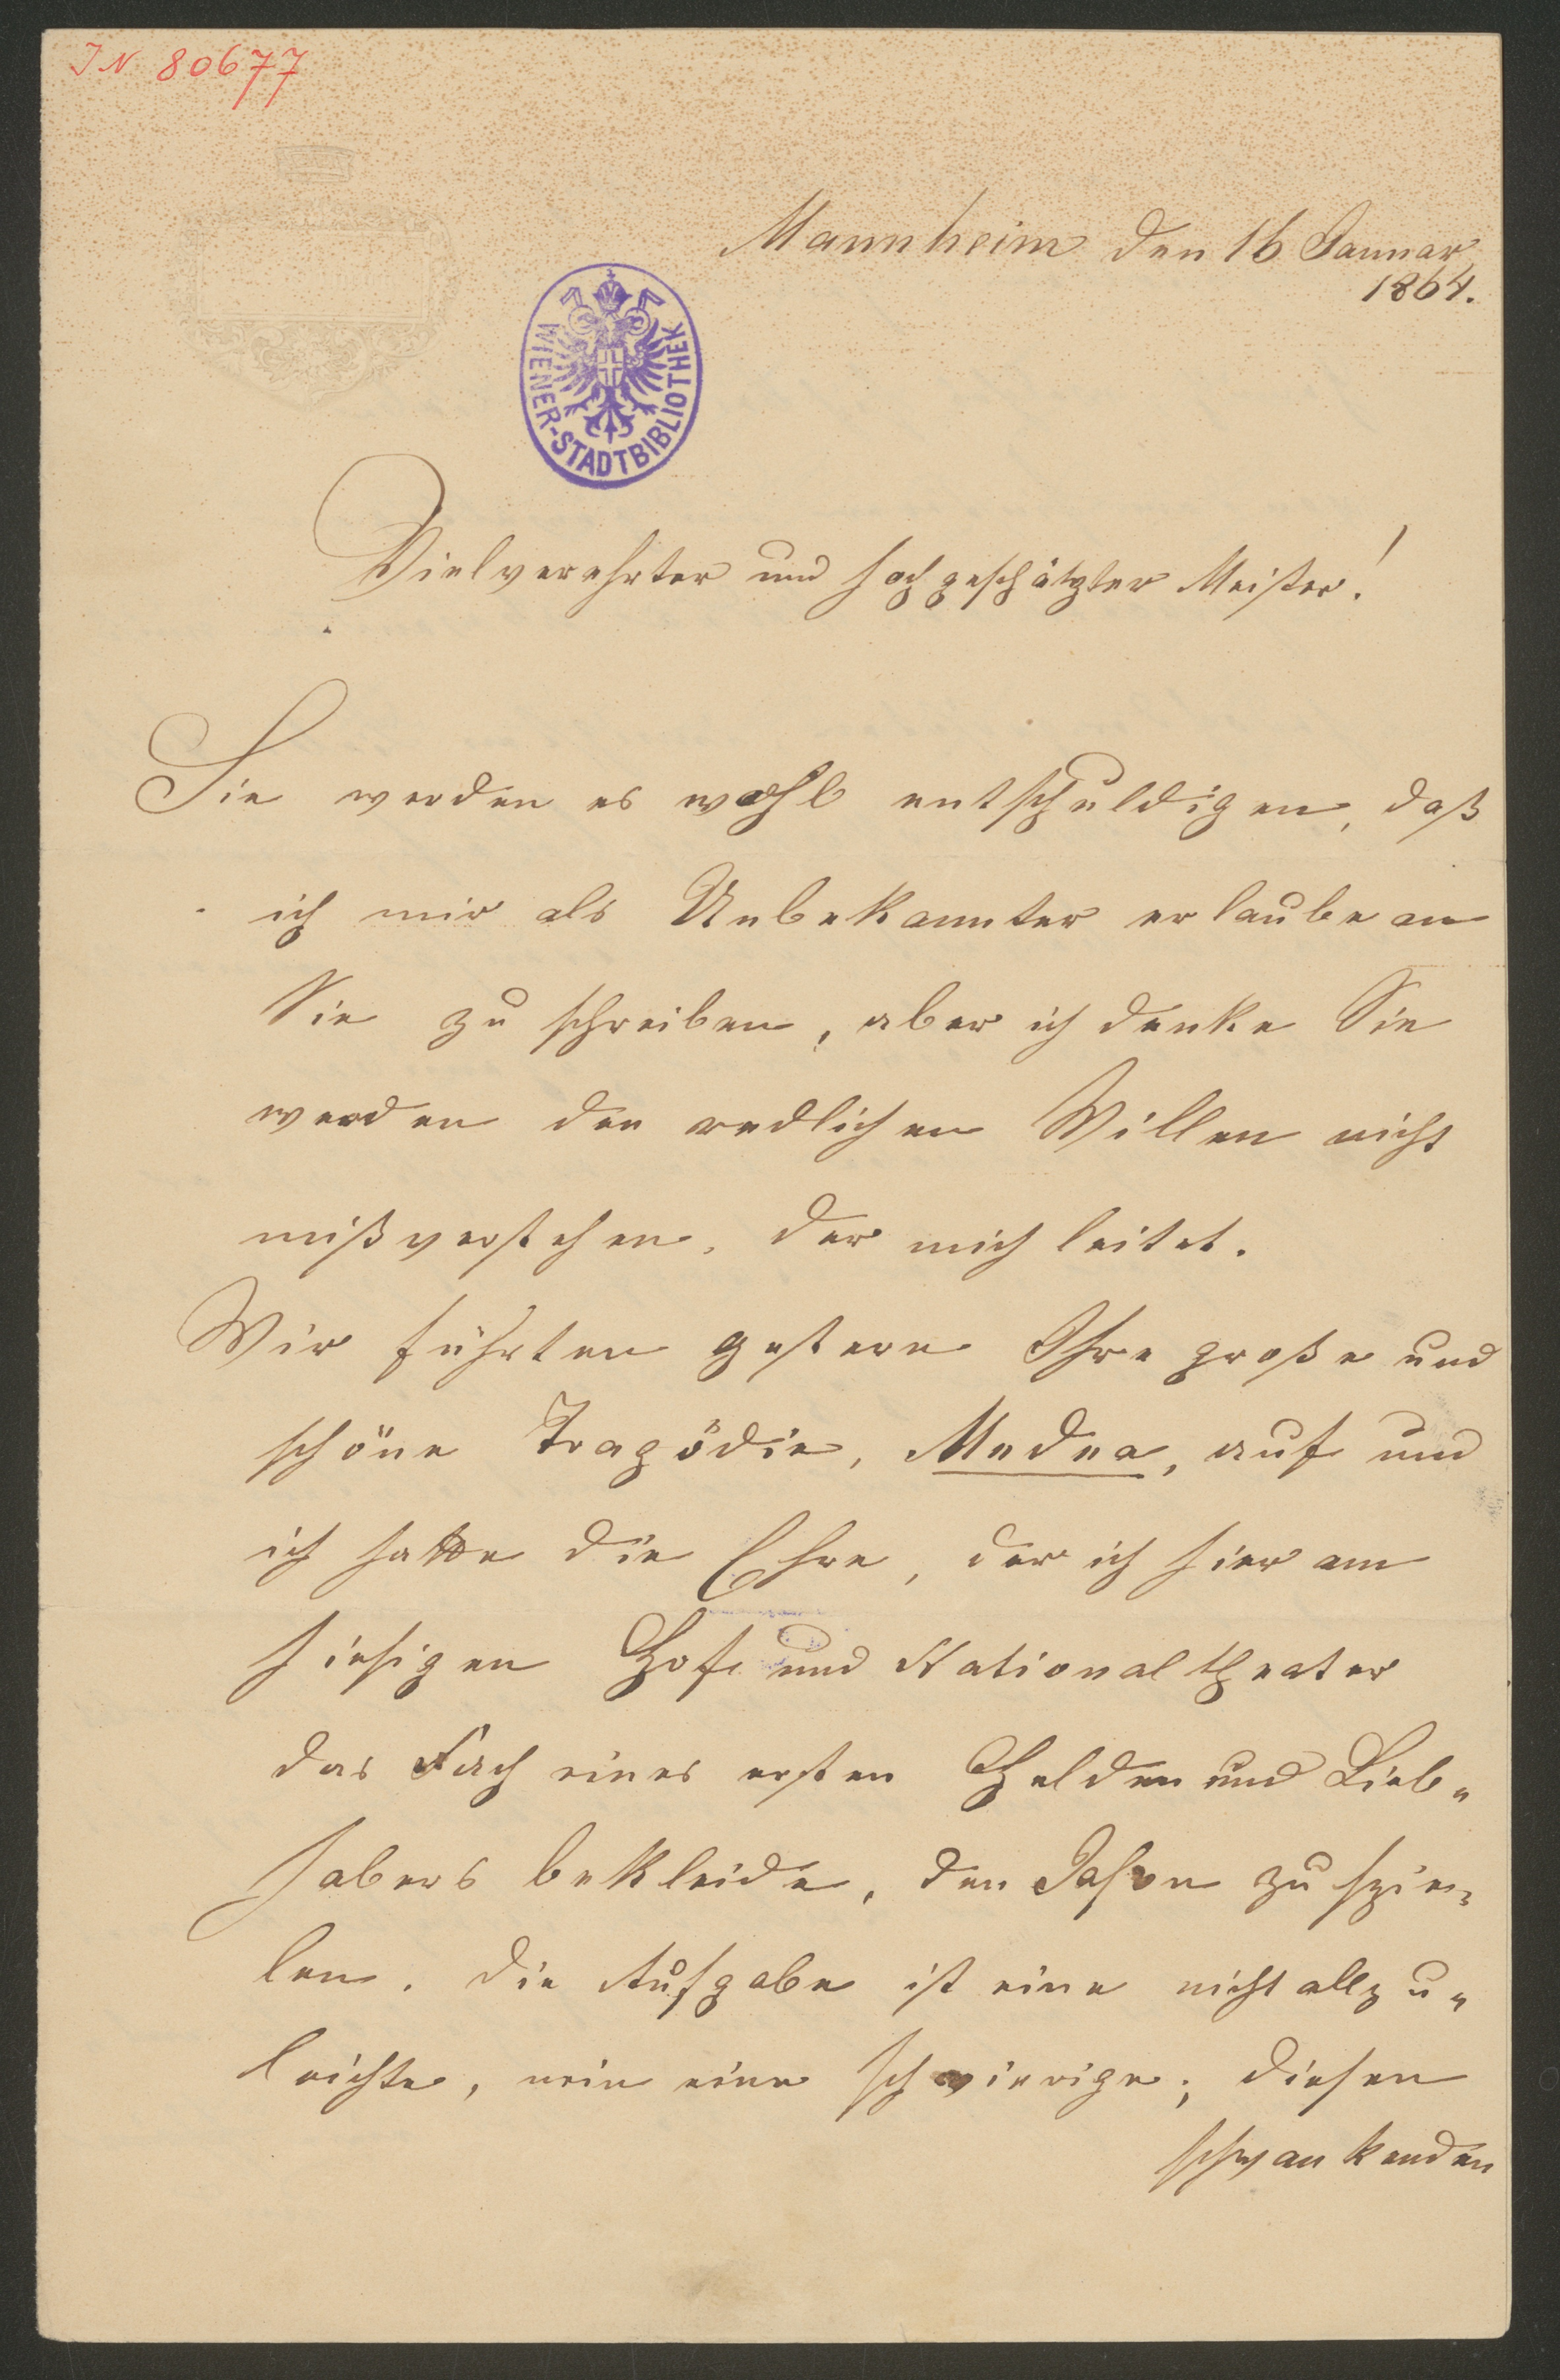 IN 80677
Mannheim den 16 Januar
1864.
WIENER-STADTBIBLIOTHEK
Vielverehrter und hochgeschätzter Meister!
Sie werden es wohl entschuldigen, daß
ich mir als Unbekannter erlaube an
Sie zu schreiben, aber ich denke Sie
werden den redlichen Willen nicht
mißverstehen, der mich leitet.
Wir führten gestern Ihre große und
schöne Tragödie, Medea, auf und
ich hatte die Ehre, der ich hier am
hiesigen Hof und Nationaltheater
das Fach eines ersten Helden und Lieb-
habers bekleide, den Jason zu spie-
len. Die Aufgabe ist eine nicht allzu-
leichte, nein eine schwierige; diesen
schwankenden